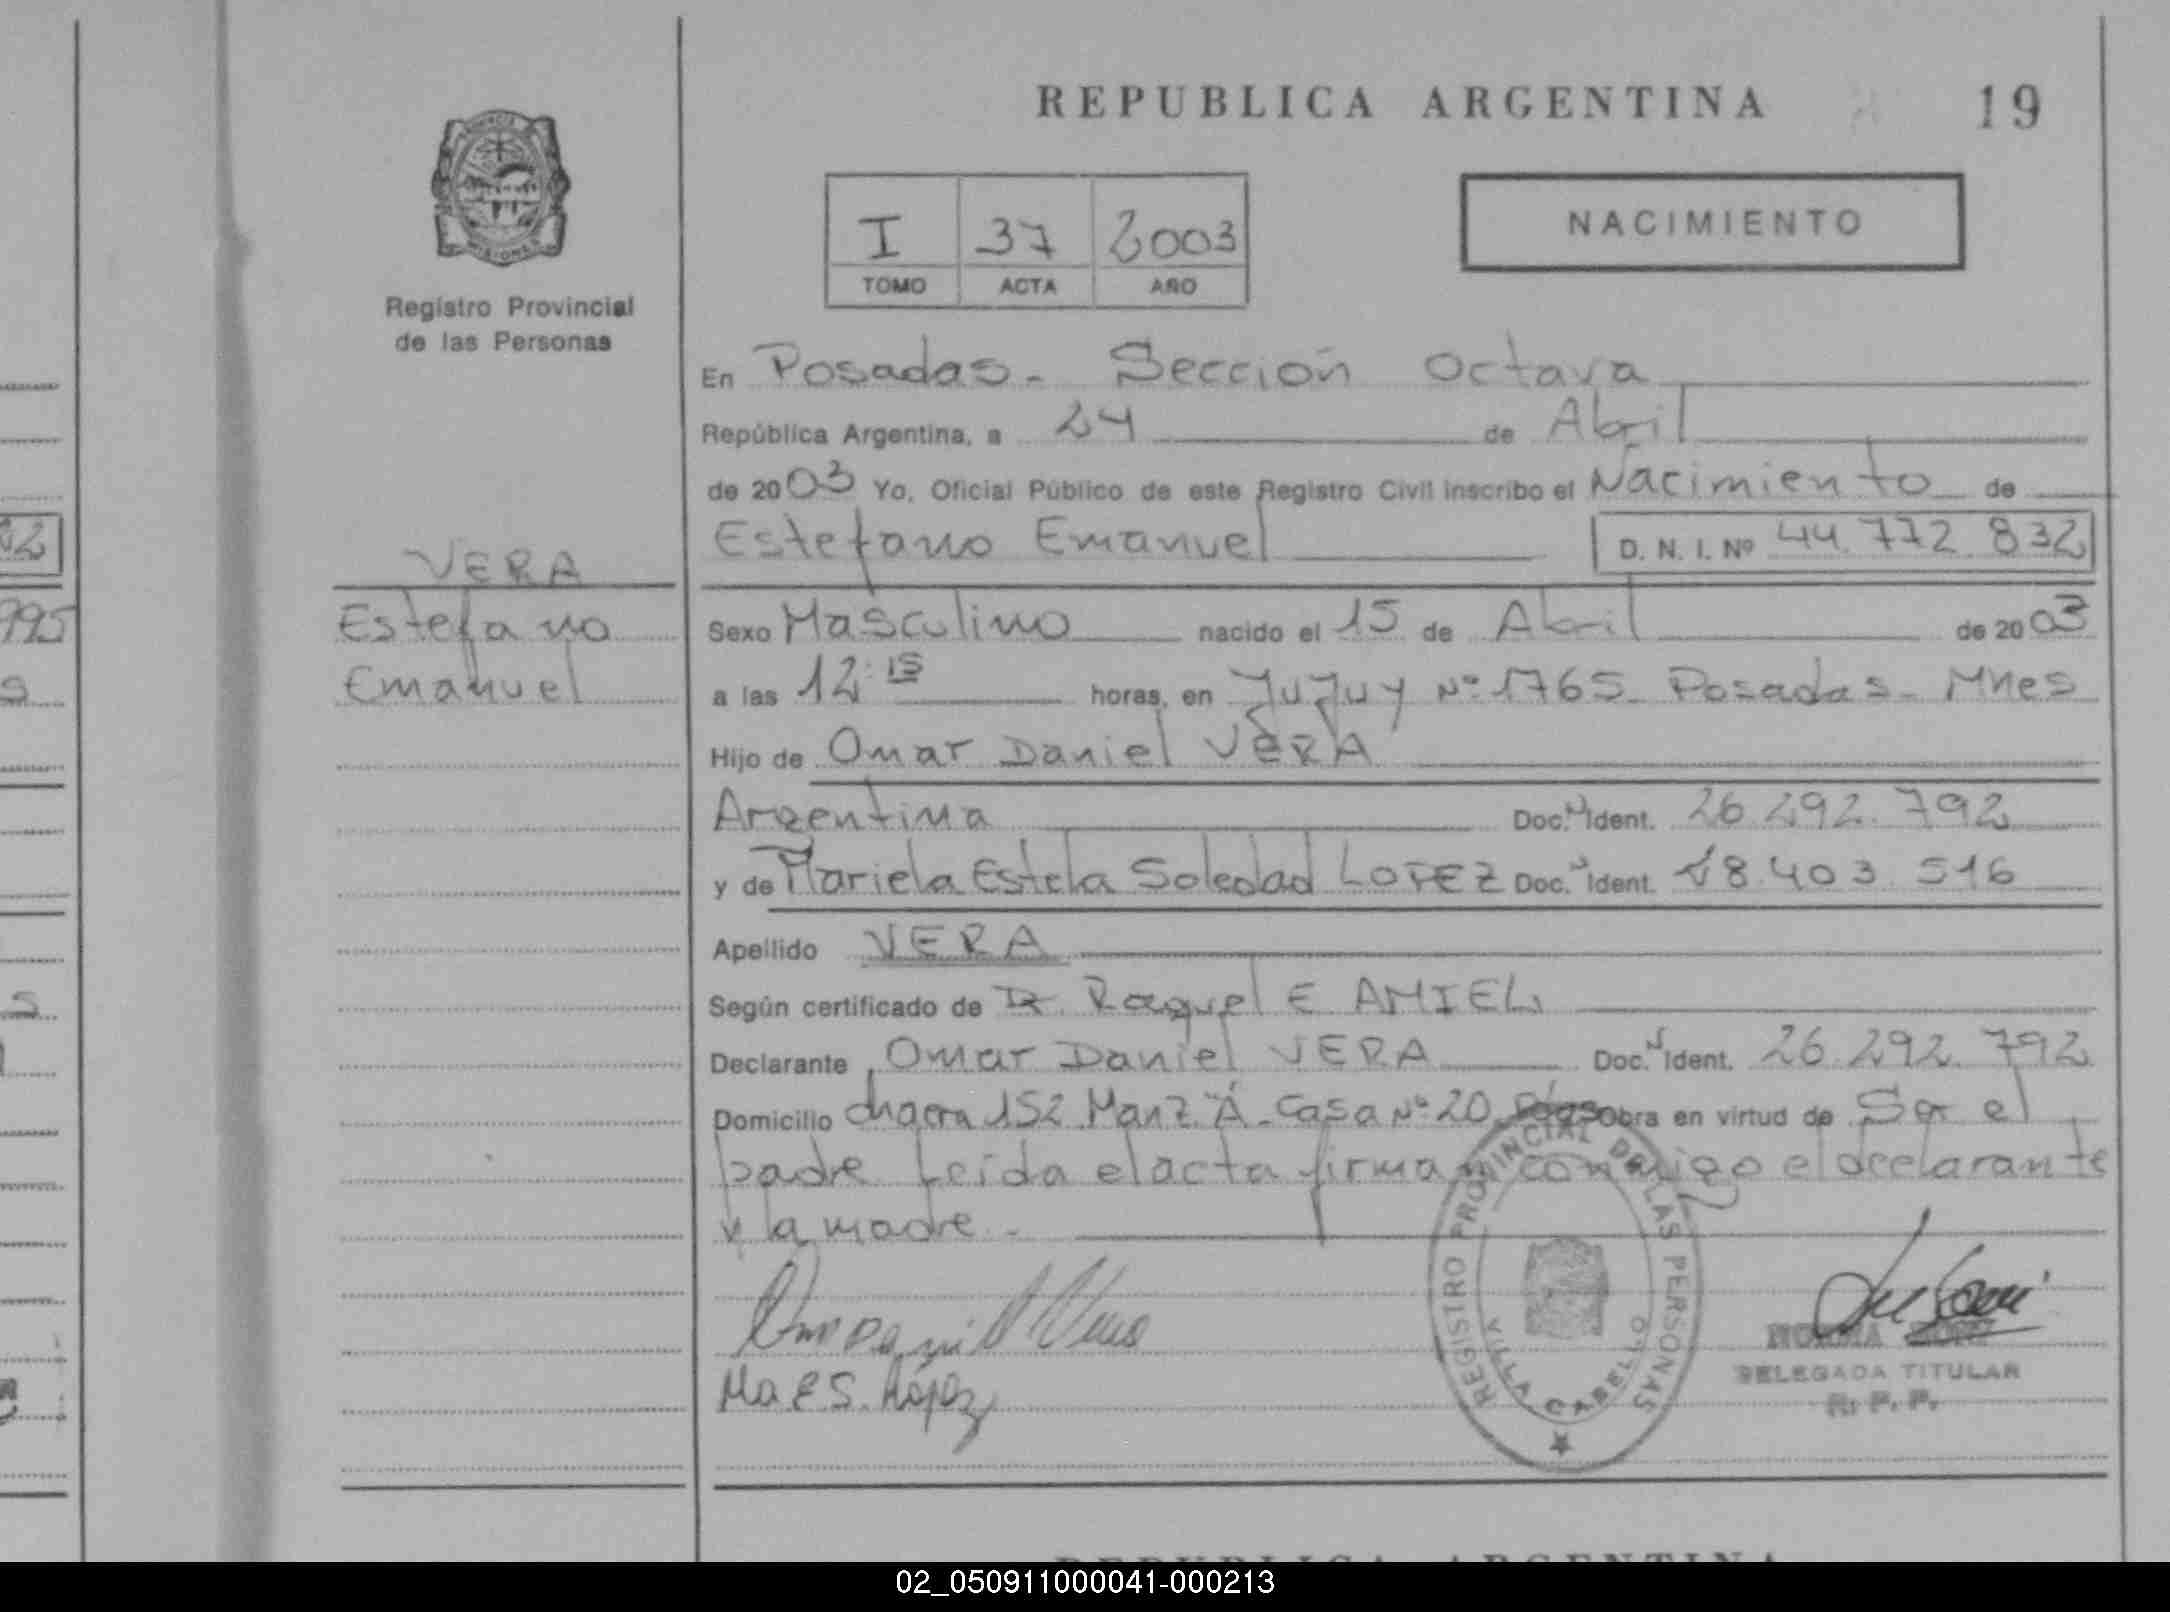 REPUBLICA ARGENTINA
19
PROVINCIA
MISIONES
Registro Provincial
de las Personas
I 37 2003
TOMO ACTA AÑO
NACIMIENTO
En Posadas - Sección Octava
República Argentina, a 24 de Abril
de 2003 Yo, Oficial Público de este Registro Civil inscribo el Nacimiento de
Estefano Emanuel D. N. I. Nº 44.772.832
VERA
Estefano
Emanuel
Sexo Masculino nacido el 15 de Abril de 2003
a las 12:15 horas, en Jujuy Nº 1765 - Posadas - Mnes
Hijo de Omar Daniel VERA
Argentina Doc. N Ident. 26.292.792
y de Mariela Estela Soledad LOPEZ Doc. N Ident. 18.403.516
Apellido VERA
Según certificado de Dr. Raquel E AMIEL
Declarante Omar Daniel VERA Doc. N Ident. 26.292.792
Domicilio chacra 152 Manz "A" - Casa Nº 20 obra en virtud de Ser el
padre Leída el acta firman conmigo el declarante
y la madre -
Omar Daniel Vera
Ma E.S. López
REGISTRO PROVINCIAL DE LAS PERSONAS
VILLA CABELLO
NORMA
DELEGADA TITULAR
R. P. P.
995
REPUBLICA ARGENTINA
02_050911000041-000213